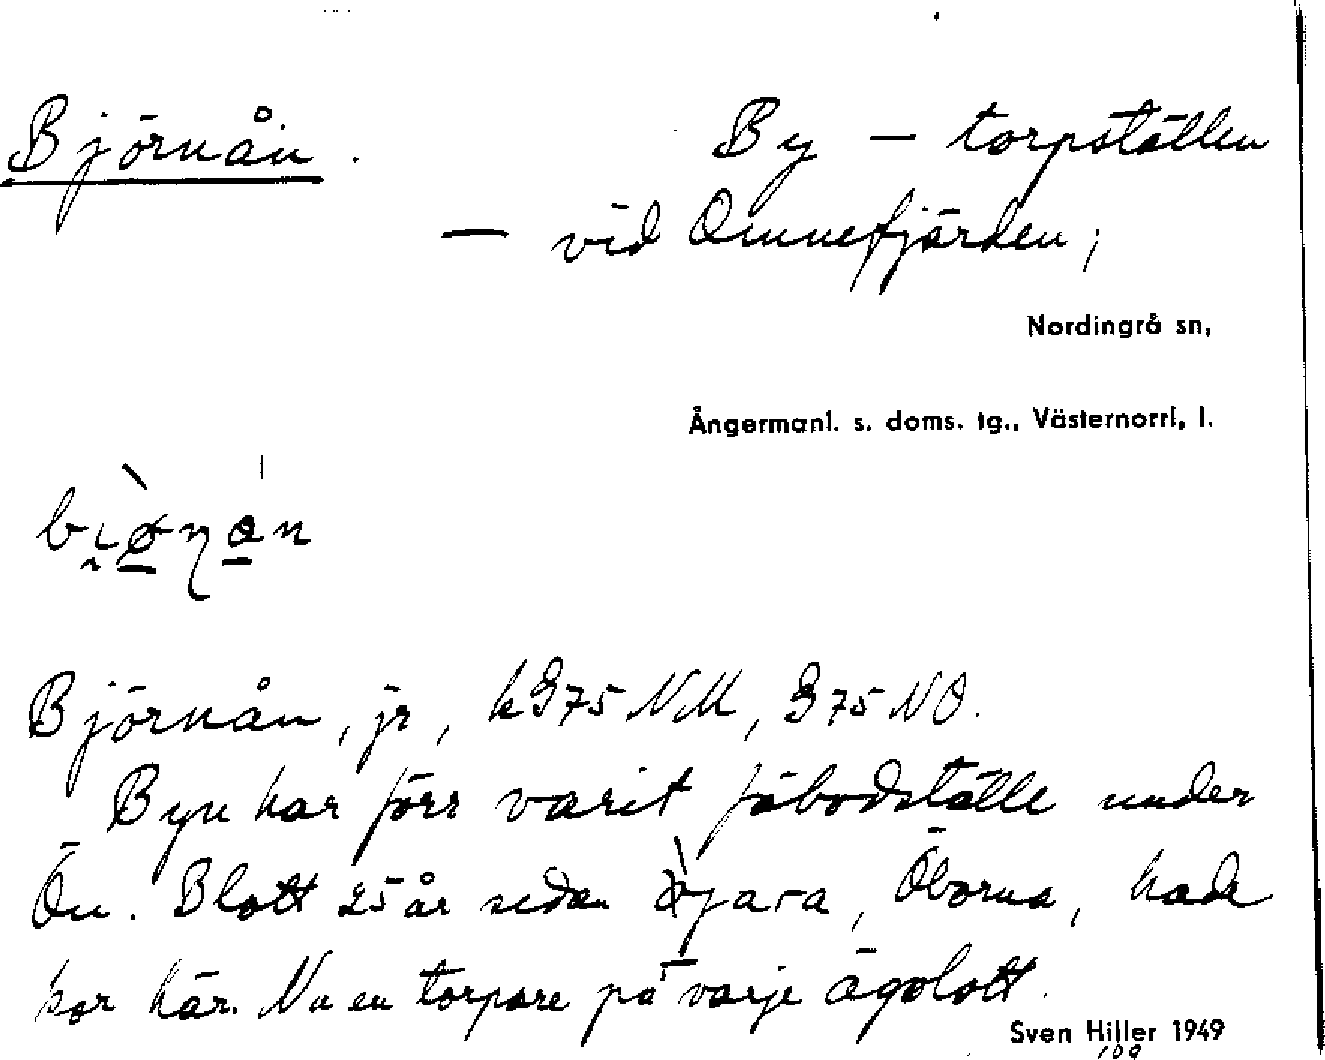 Björnån. By - torpställen
- vid Omnefjärden,
Nordingrå sn,
Ångermanl. s. doms. tg., Västernorrl. l.
Björnån, jr, k375 NM, 375 NO.
Byn har förr varit fäbodställe under
Ön. Blott 25 år sedan Öborna, hade
kor här. Nu en torpare på varje ägolott.
Sven Hiller 1949